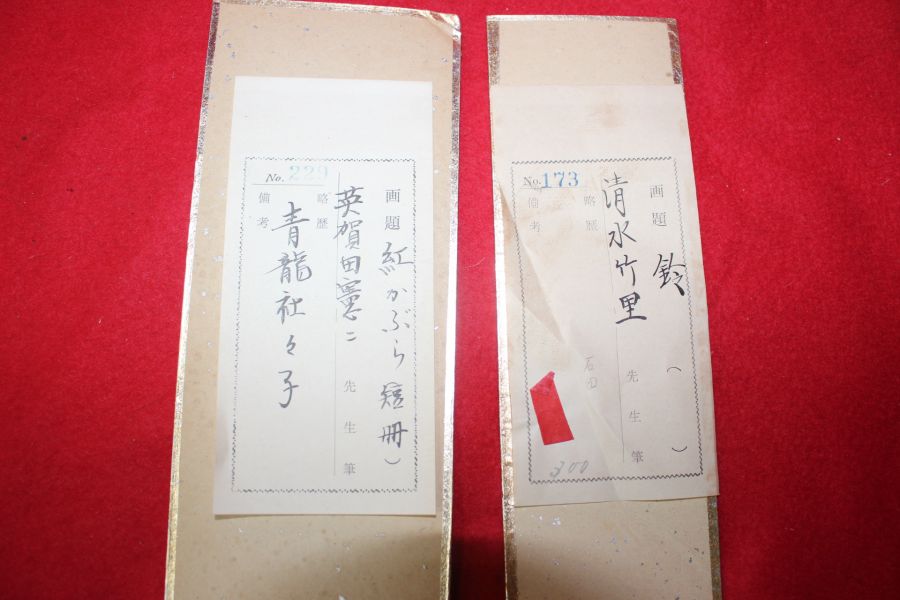 No. 229
画題 紅かぶら(短冊)
英賀田憲二 先生筆
略歴
青龍社々子
備考
No. 173
画題 鈴 ( )
清水竹里 先生筆
略歴
石田
備考
300